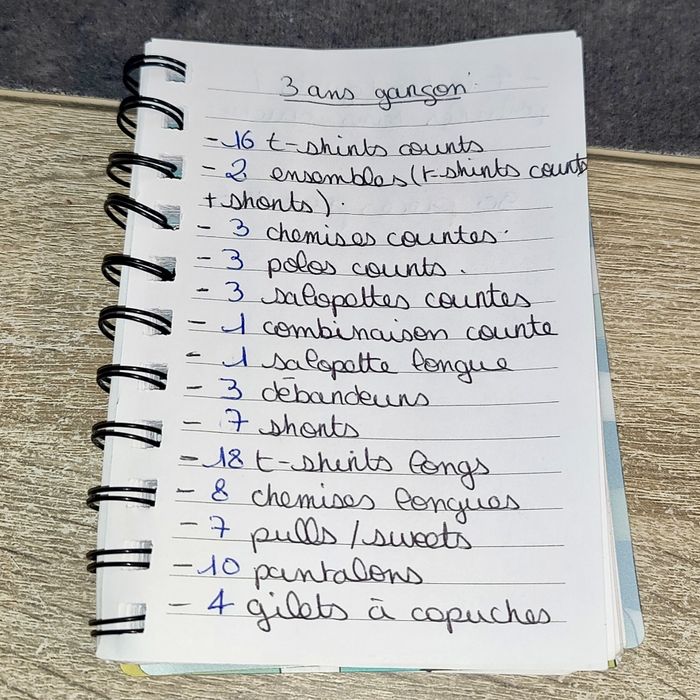 3 ans garçon
- 16 t-shirts courts
- 2 ensembles (t-shirts courts
+ shorts).
- 3 chemises courtes.
- 3 polos courts.
- 3 salopettes courtes
- 1 combinaison courte
- 1 salopette longue
- 3 débardeurs
- 7 shorts
- 18 t-shirts longs
- 8 chemises longues
- 7 pulls / sweets
- 10 pantalons
- 4 gilets à capuches